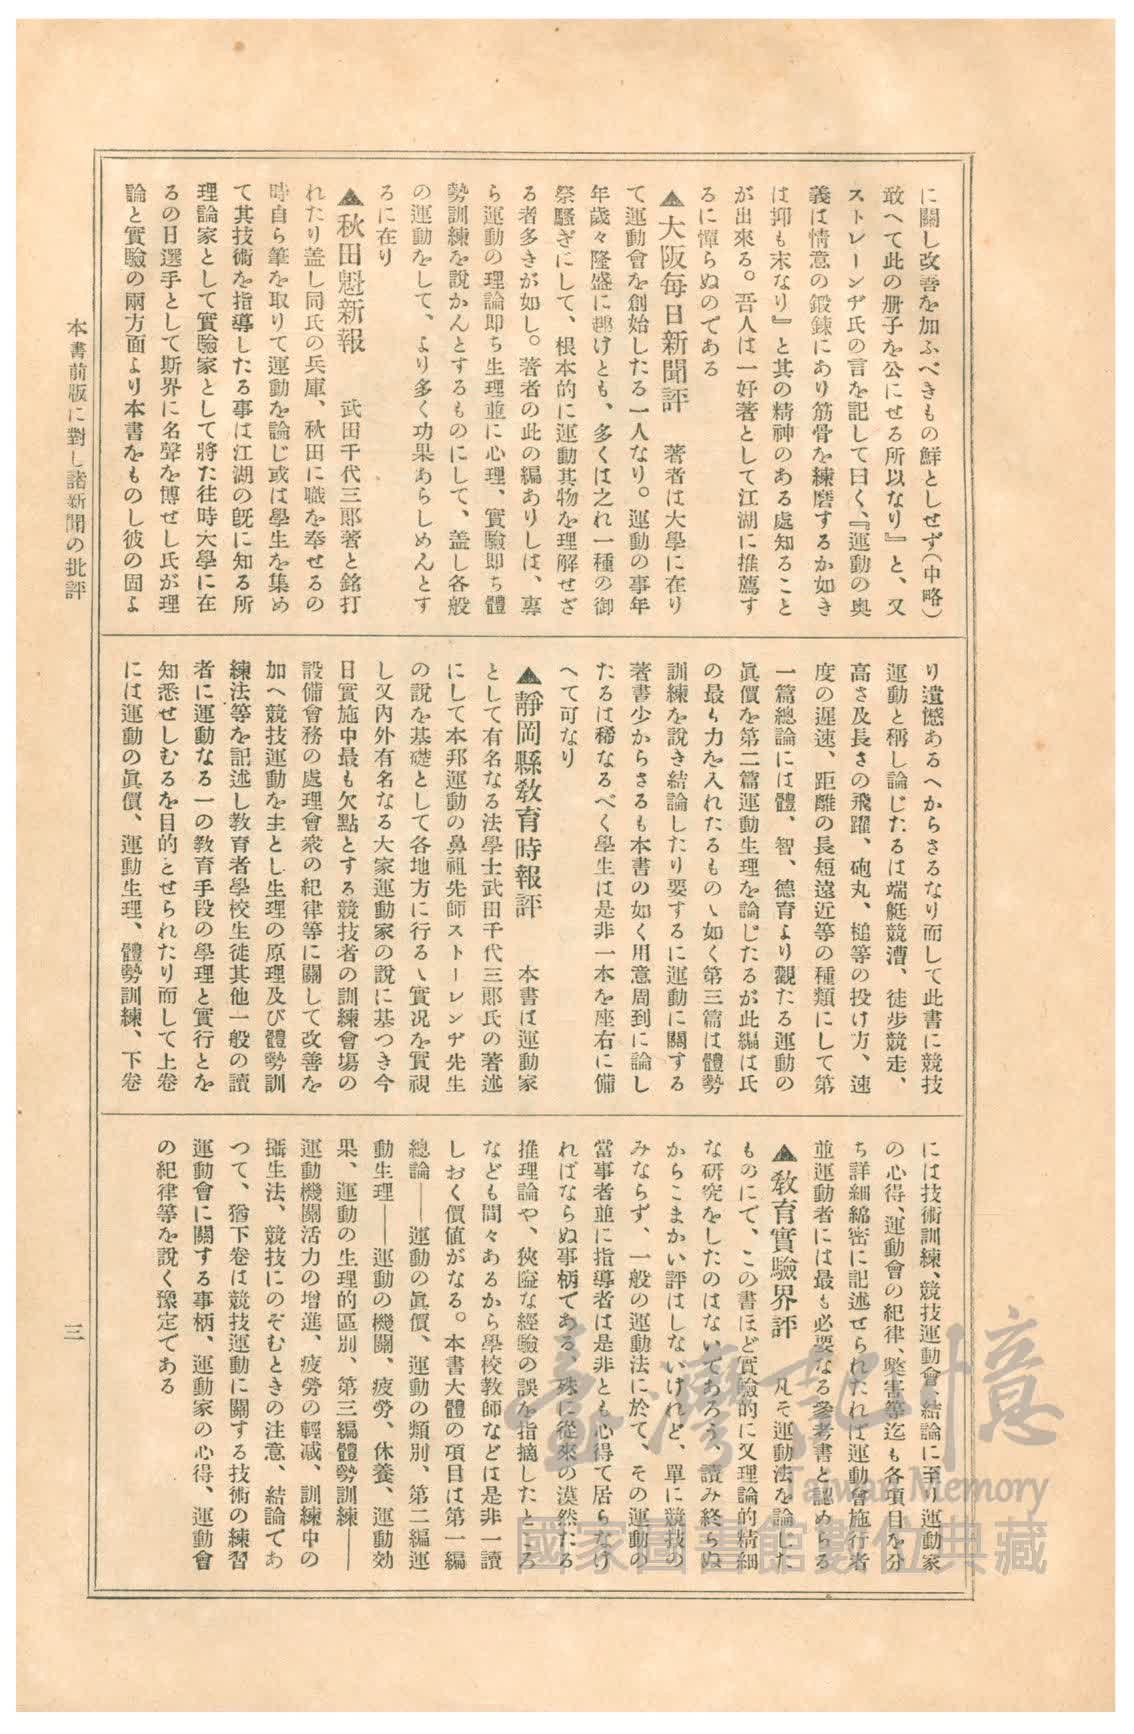 に關し改善を加ふべきもの鮮としせず(中略)
敢へて此の册子を公にせる所以なり』と、又
ストレーンヂ氏の言を記して曰く、『運動の奧
義は情意の鍛錬にあり筋骨を練磨するか如き
は抑も末なり』と其の精神のある處知ること
が出來る。吾人は一好著として江湖に推薦す
るに憚らぬのである
▲大阪毎日新聞評　著者は大學に在り
て運動會を創始したる一人なり。運動の事年
年歲々隆盛に趣けとも、多くは之れ一種の御
祭騷ぎにして、根本的に運動其物を理解せざ
る者多きが如し。著者の此の編ありしは、專
ら運動の理論即ち生理並に心理、實驗即ち體
勢訓練を說かんとするものにして、盖し各般
の運動をして、より多く功果あらしめんとす
るに在り
▲秋田魁新報　武田千代三郎著と銘打
れたり盖し同氏の兵庫、秋田に職を奉せるの
時自ら筆を取りて運動を論じ或は學生を集め
て其技術を指導したる事は江湖の既に知る所
理論家として實驗家として將た往時大學に在
るの日選手として斯界に名聲を博せし氏が理
論と實驗の兩方面より本書をものし彼の固よ
り遺憾あるへからさるなり而して此書に競技
運動と稱し論じたるは端艇競漕、徒步競走、
高さ及長さの飛躍、砲丸、槌等の投け方、速
度の遲速、距離の長短遠近等の種類にして第
一篇總論には體、智、德育より觀たる運動の
眞價を第二篇運動生理を論じたるが此編は氏
の最も力を入れたるものゝ如く第三篇は體勢
訓練を說き結論したり要するに運動に關する
著書少からさるも本書の如く用意周到に論し
たるは稀なるべく學生は是非一本を座右に備
へて可なり
▲靜岡縣敎育時報評　本書は運動家
として有名なる法學士武田千代三郎氏の著述
にして本邦運動の鼻祖先師ストーレンヂ先生
の說を基礎として各地方に行るゝ實况を實視
し又內外有名なる大家運動家の說に基つき今
日實施中最も欠點とする競技者の訓練會塲の
設備會務の處理會衆の紀律等に關して改善を
加へ競技運動を主とし生理の原理及び體勢訓
練法等を記述し敎育者學校生徒其他一般の讀
者に運動なる一の敎育手段の學理と實行とを
知悉せしむるを目的とせられたり而して上卷
には運動の眞價、運動生理、體勢訓練、下卷
には技術訓練、競技運動會、結論に至り運動家
の心得、運動會の紀律、弊害等迄も各項目を分
ち詳細綿密に記述せられたれば運動會施行者
並運動者には最も必要なる參考書と認めらる
▲敎育實驗界評　凡そ運動法を論した
ものにて、この書ほど實驗的に又理論的精細
な研究をしたのはないであろう、讀み終らぬ
からこまかい評はしないけれど、單に競技の
みならず、一般の運動法に於て、その運動の
當事者並に指導者は是非とも心得て居らなけ
ればならぬ事柄である、殊に從來の漠然たる
推理論や、狹隘な經驗の誤を指摘したところ
なども間々あるから學校敎師などは是非一讀
しおく價値がなる。本書大體の項目は第一編
總論——運動の眞價、運動の類別、第二編運
動生理——運動の機關、疲勞、休養、運動効
果、運動の生理的區別、第三編體勢訓練——
運動機關活力の增進、疲勞の輕減、訓練中の
攝生法、競技にのぞむときの注意、結論であ
つて、猶下卷は競技運動に關する技術の練習
運動會に關する事柄、運動家の心得、運動會
の紀律等を說く豫定である
本書前版に對し諸新聞の批評
三
臺灣記憶
Taiwan Memory
國家圖書館數位典藏